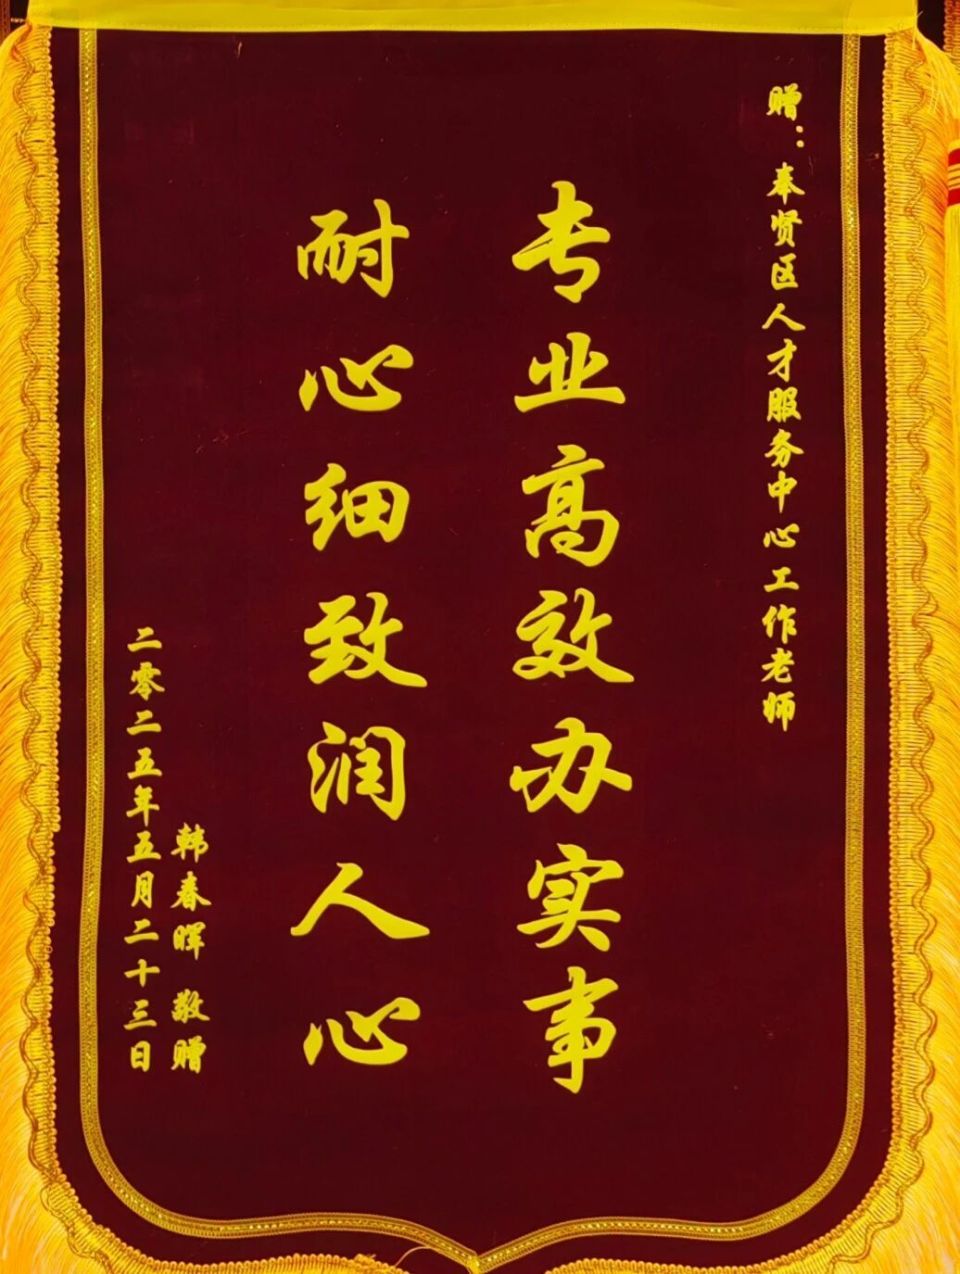 赠：奉贤区人才服务中心工作老师
专业高效办实事
耐心细致润人心
韩春晖 敬赠
二零二五年五月二十三日